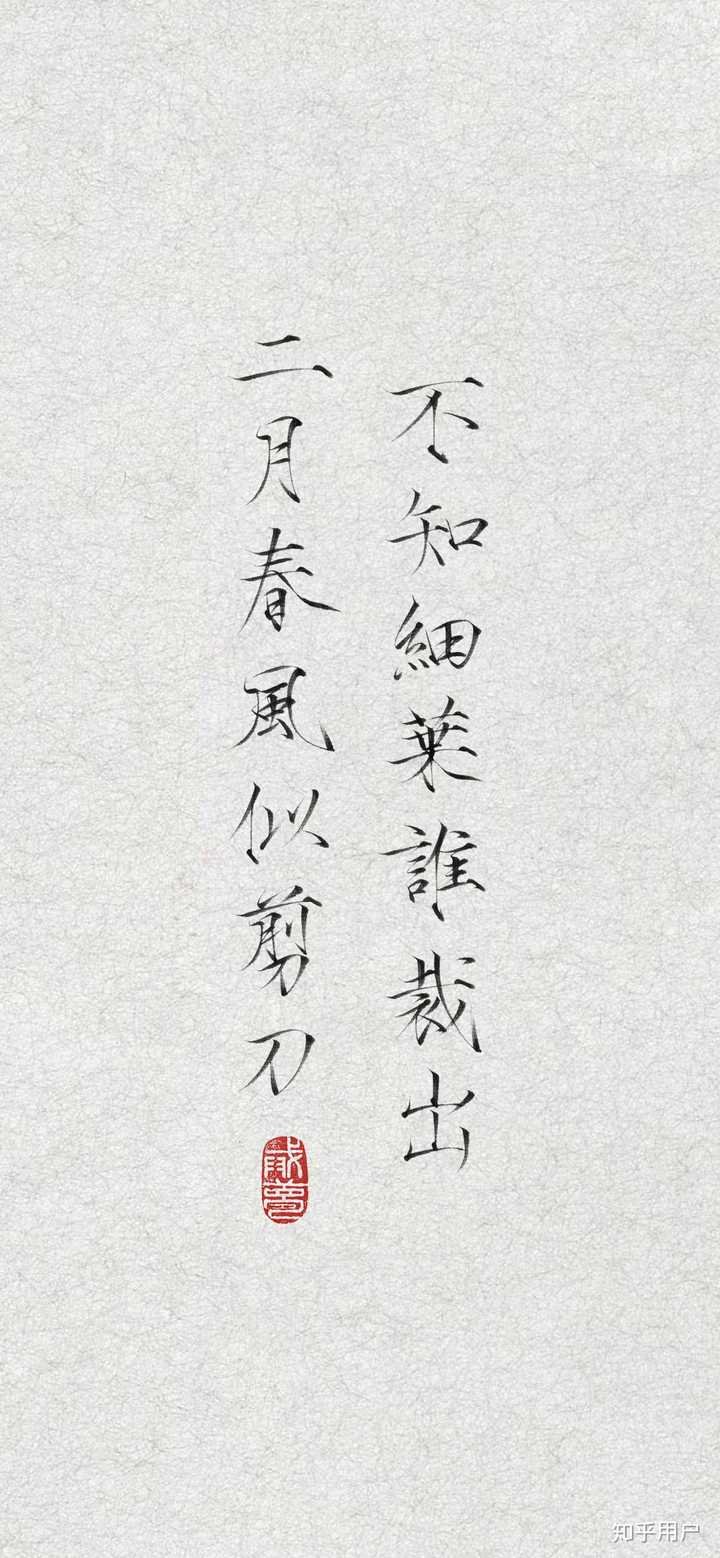 不知細葉誰裁出
二月春風似剪刀
知乎用户